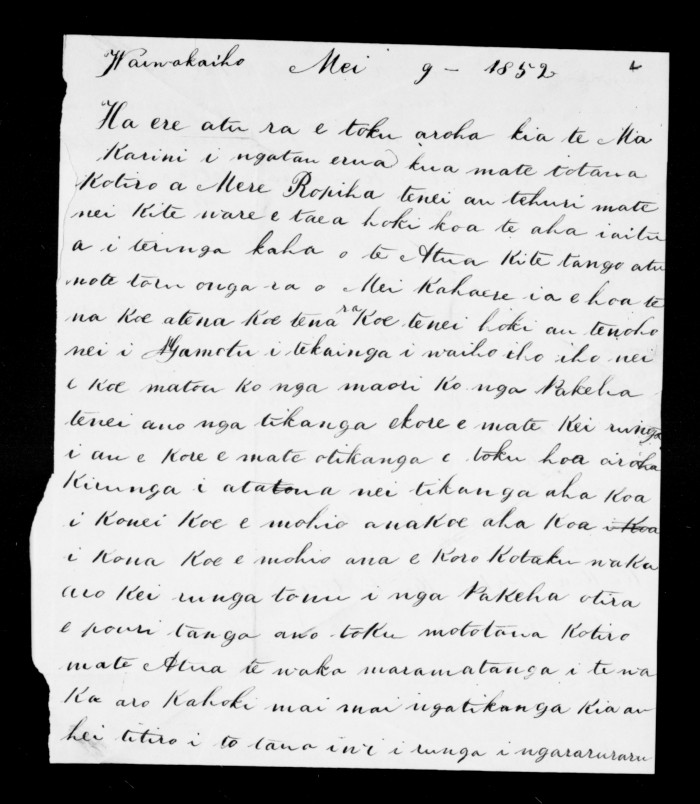 Waiwakaiho Mei 9 - 1852
Ha ere atu ra e toku aroha kia te Ma
Karini i ngatau erua kua mate totaua
Kotiro a Mere Ropiha tenei au tehuri mate
nei Kite ware e taea hoki koa te aha iaitu
a i teringa kaha o te Atua Kite tango atu
mote toru onga ra o Mei Kahaere ia e hoa te
na Koe atena Koe tena ra Koe tenei hoki au tenoho
nei i Ngamotu i tekainga i waiho iho iho nei
e Koe matou ko nga maori Ko nga Pakeha
tenei ano nga tikanga ekore e mate Kei runga
i au e Kore e mate otikanga e toku hoa aroha
Kirunga i atatoua nei tikanga aha Koa
i Konei Koe e mohio anaKoe aha Koa i Koa
i Kona Koe e mohio ana e Koro Kotaku waka
aro Kei runga tonu i nga Pakeha otira
e pouri tanga ano toku mototaua Kotiro
mate Atua te waka maramatanga i te wa
Ka aro Kahoki mai mai ngatikanga Kia au
hei titiro i to taua iwi i runga i ngararuraru